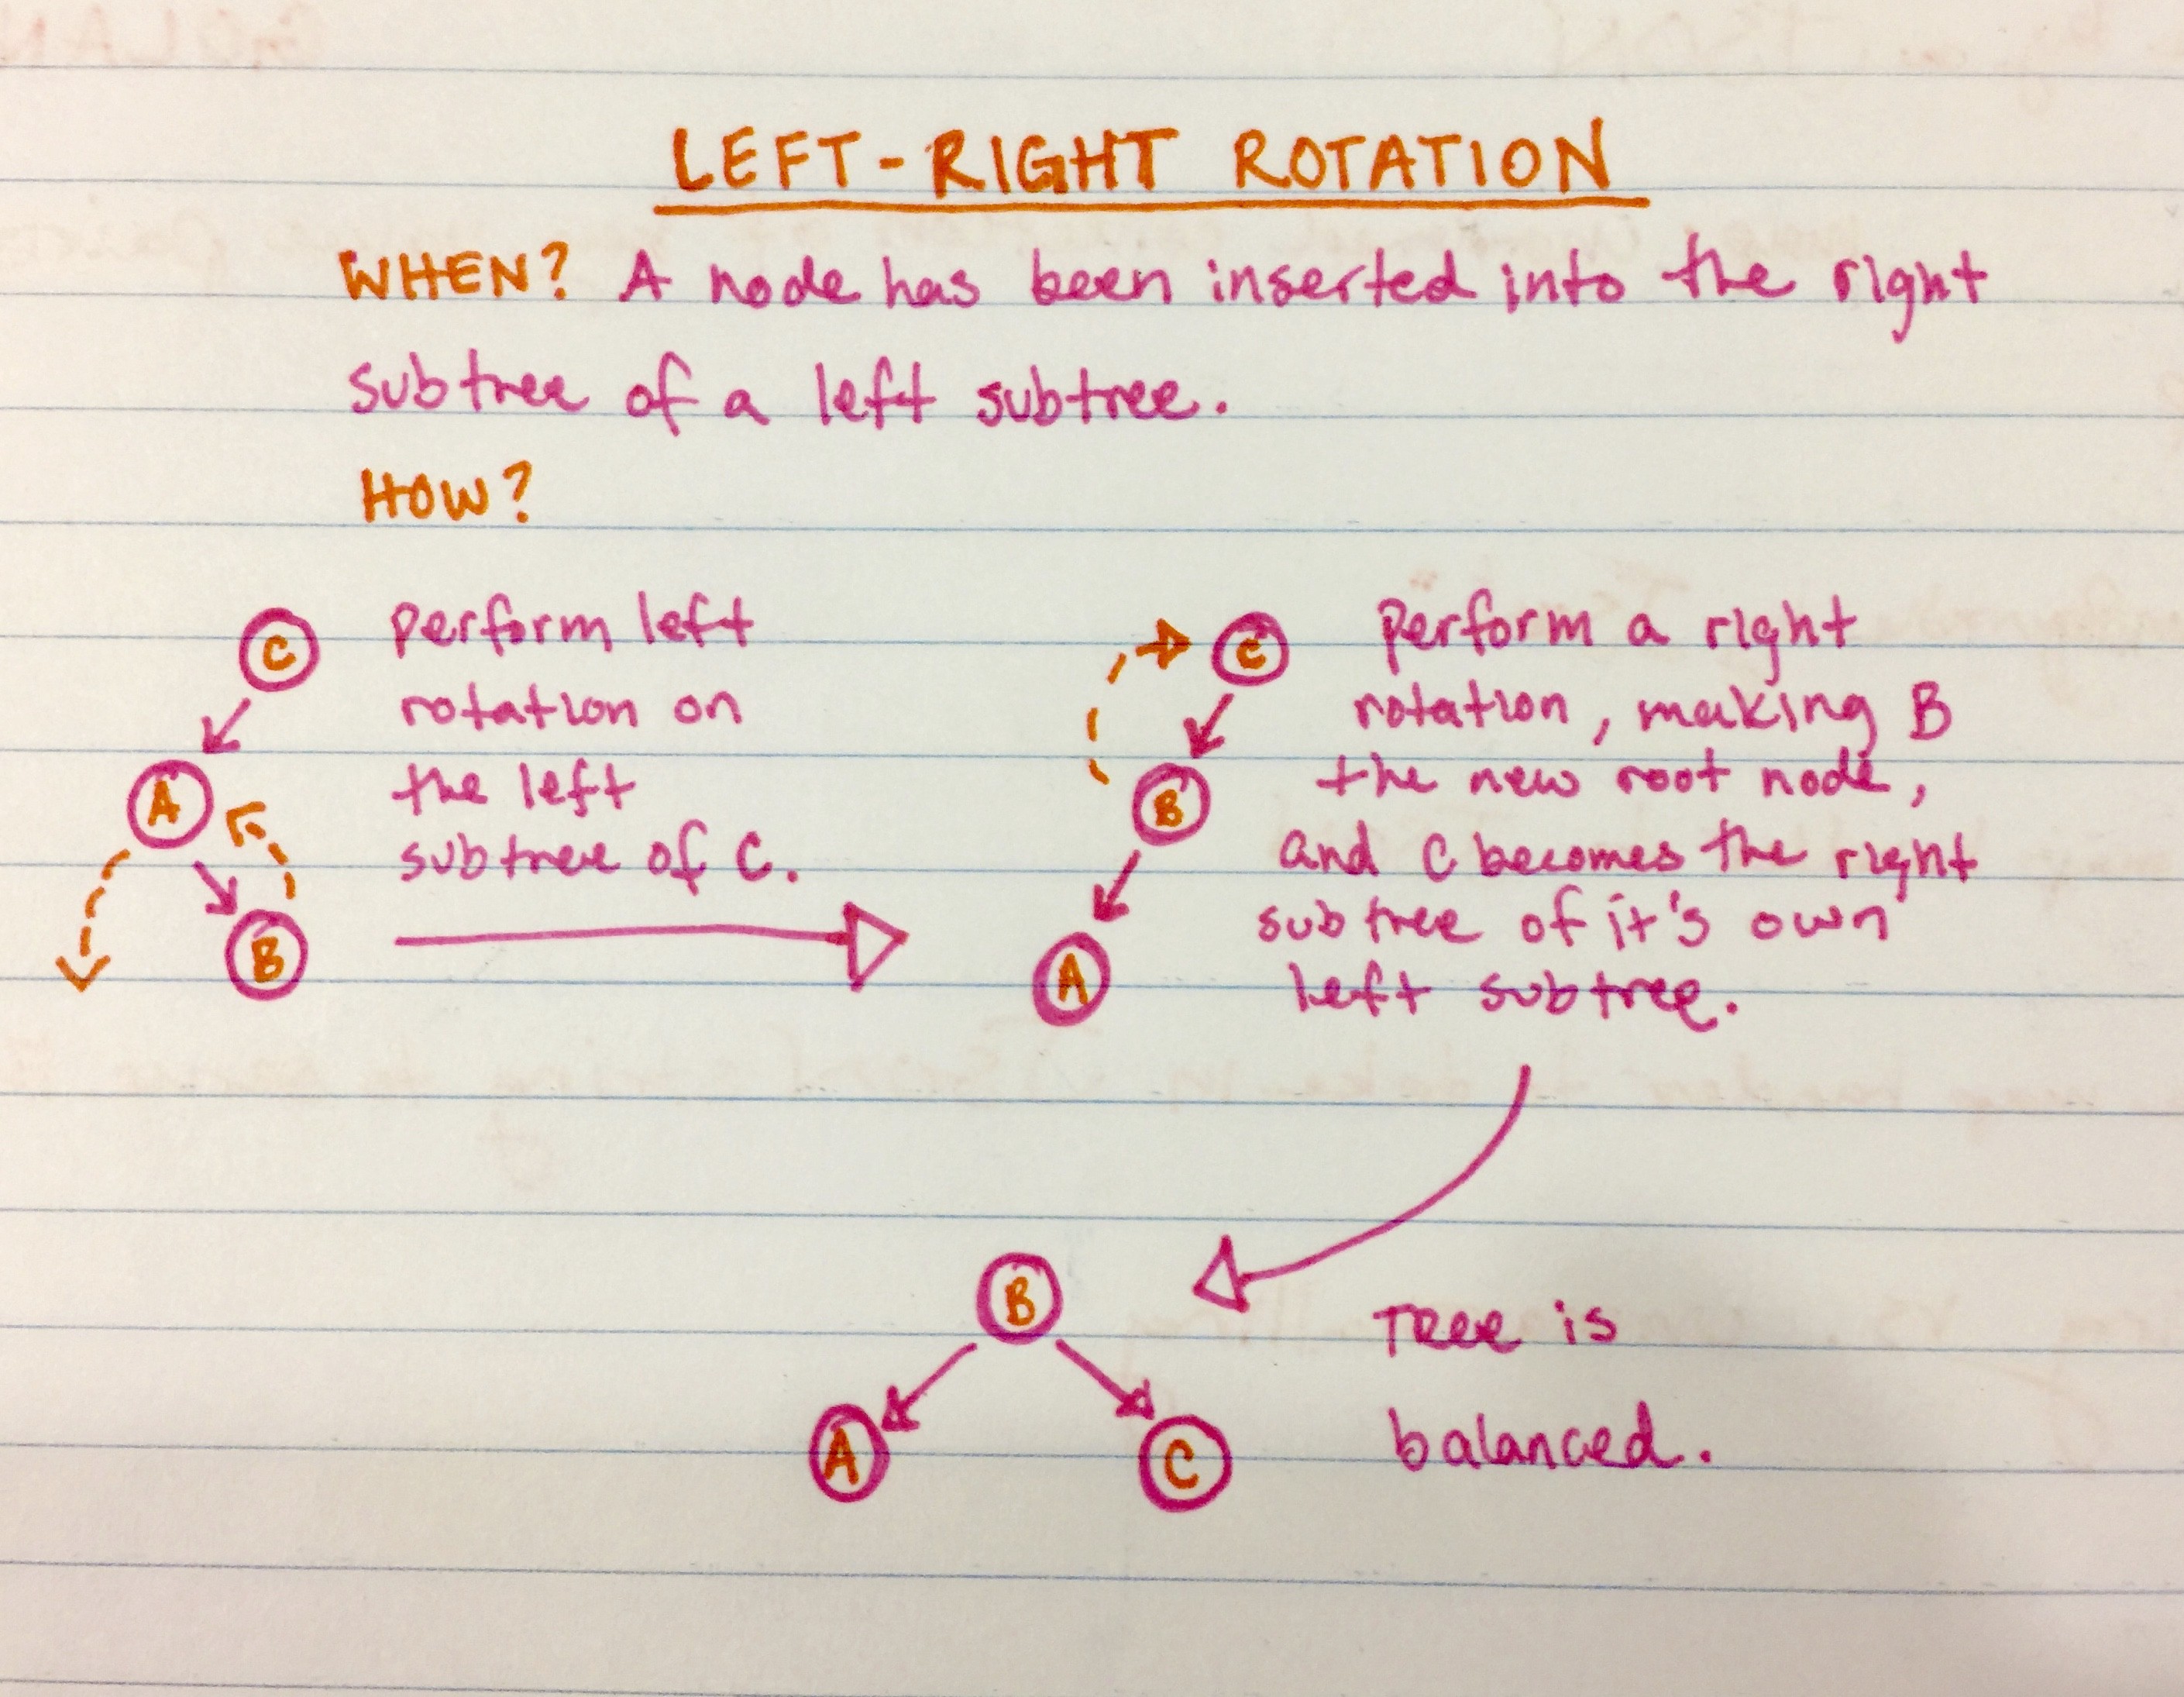 LEFT-RIGHT ROTATION
WHEN? A node has been inserted into the right
subtree of a left subtree.
HOW?
C
A
B
perform left
rotation on
the left
subtree of C.
C
B
A
perform a right
rotation, making B
the new root node,
and C becomes the right
subtree of it's own
left subtree.
B
A
C
Tree is
balanced.